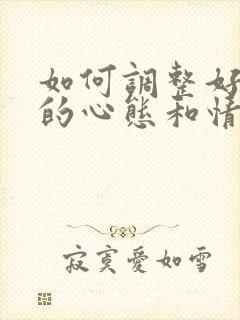 如何調整好
的心態和情
寂寞愛如雪